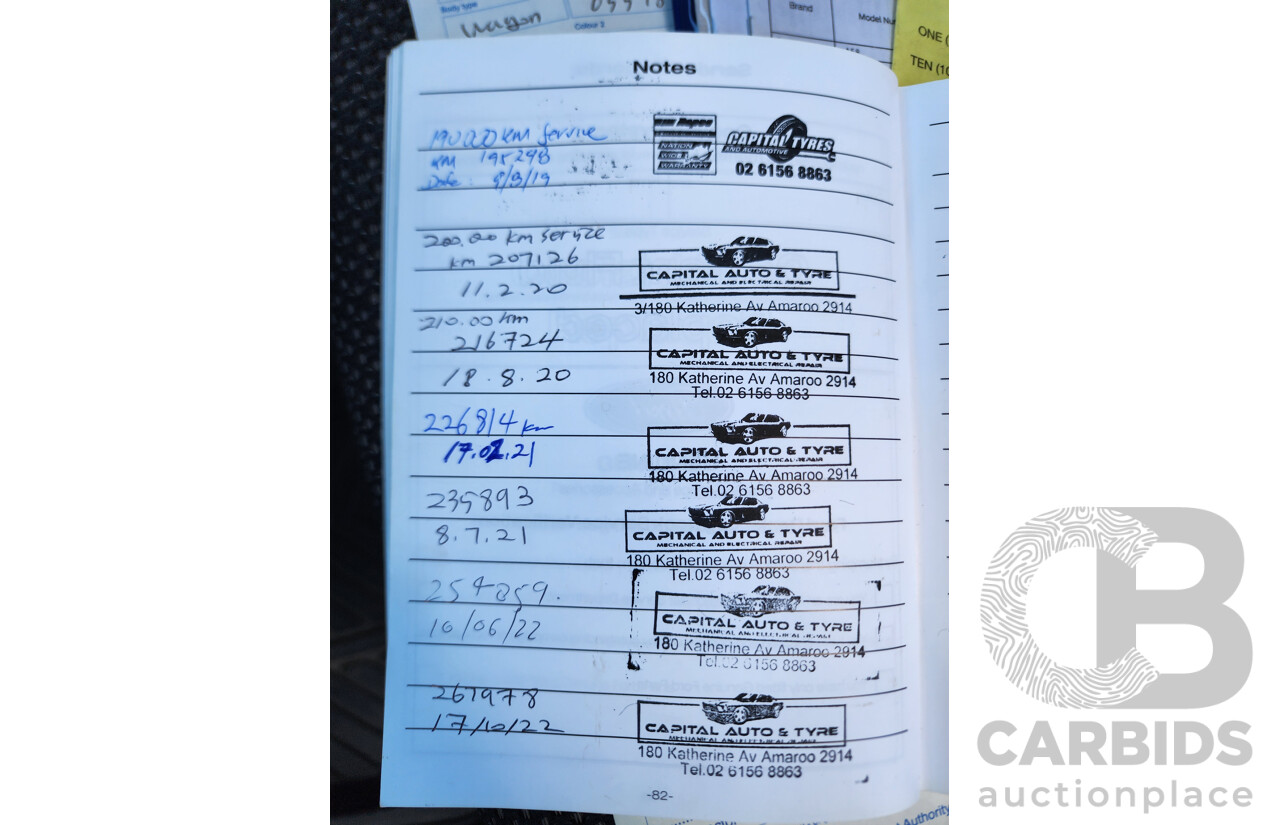 Body type
Wagon
Colour 2
Brand
Model Nu
ONE (
TEN (10
Notes
190000 km Service
km 195298
Date: 9/3/19
Repco
NATION
WIDE
WARRANTY
CAPITAL TYRES
AND AUTOMOTIVE
02 6156 8863
200.00 km service
km 207126
11.2.20
CAPITAL AUTO & TYRE
MECHANICAL AND ELECTRICAL REPAIR
3/180 Katherine Av Amaroo 2914
210.00 km
216724
18.8.20
CAPITAL AUTO & TYRE
MECHANICAL AND ELECTRICAL REPAIR
180 Katherine Av Amaroo 2914
Tel.02 6156 8863
226814 km
17.02.21
CAPITAL AUTO & TYRE
MECHANICAL AND ELECTRICAL REPAIR
180 Katherine Av Amaroo 2914
Tel.02 6156 8863
235893
8.7.21
CAPITAL AUTO & TYRE
MECHANICAL AND ELECTRICAL REPAIR
180 Katherine Av Amaroo 2914
Tel.02 6156 8863
254859.
10/06/22
CAPITAL AUTO & TYRE
MECHANICAL AND ELECTRICAL REPAIR
180 Katherine Av Amaroo 2914
Tel.02 6156 8863
261978
17/10/22
CAPITAL AUTO & TYRE
MECHANICAL AND ELECTRICAL REPAIR
180 Katherine Av Amaroo 2914
Tel.02 6156 8863
-82-
Authority
CB
CARBIDS
auctionplace